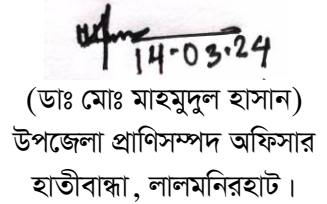 14-03-24
(ডাঃ মোঃ মাহমুদুল হাসান)
উপজেলা প্রাণিসম্পদ অফিসার
হাতীবান্ধা, লালমনিরহাট।